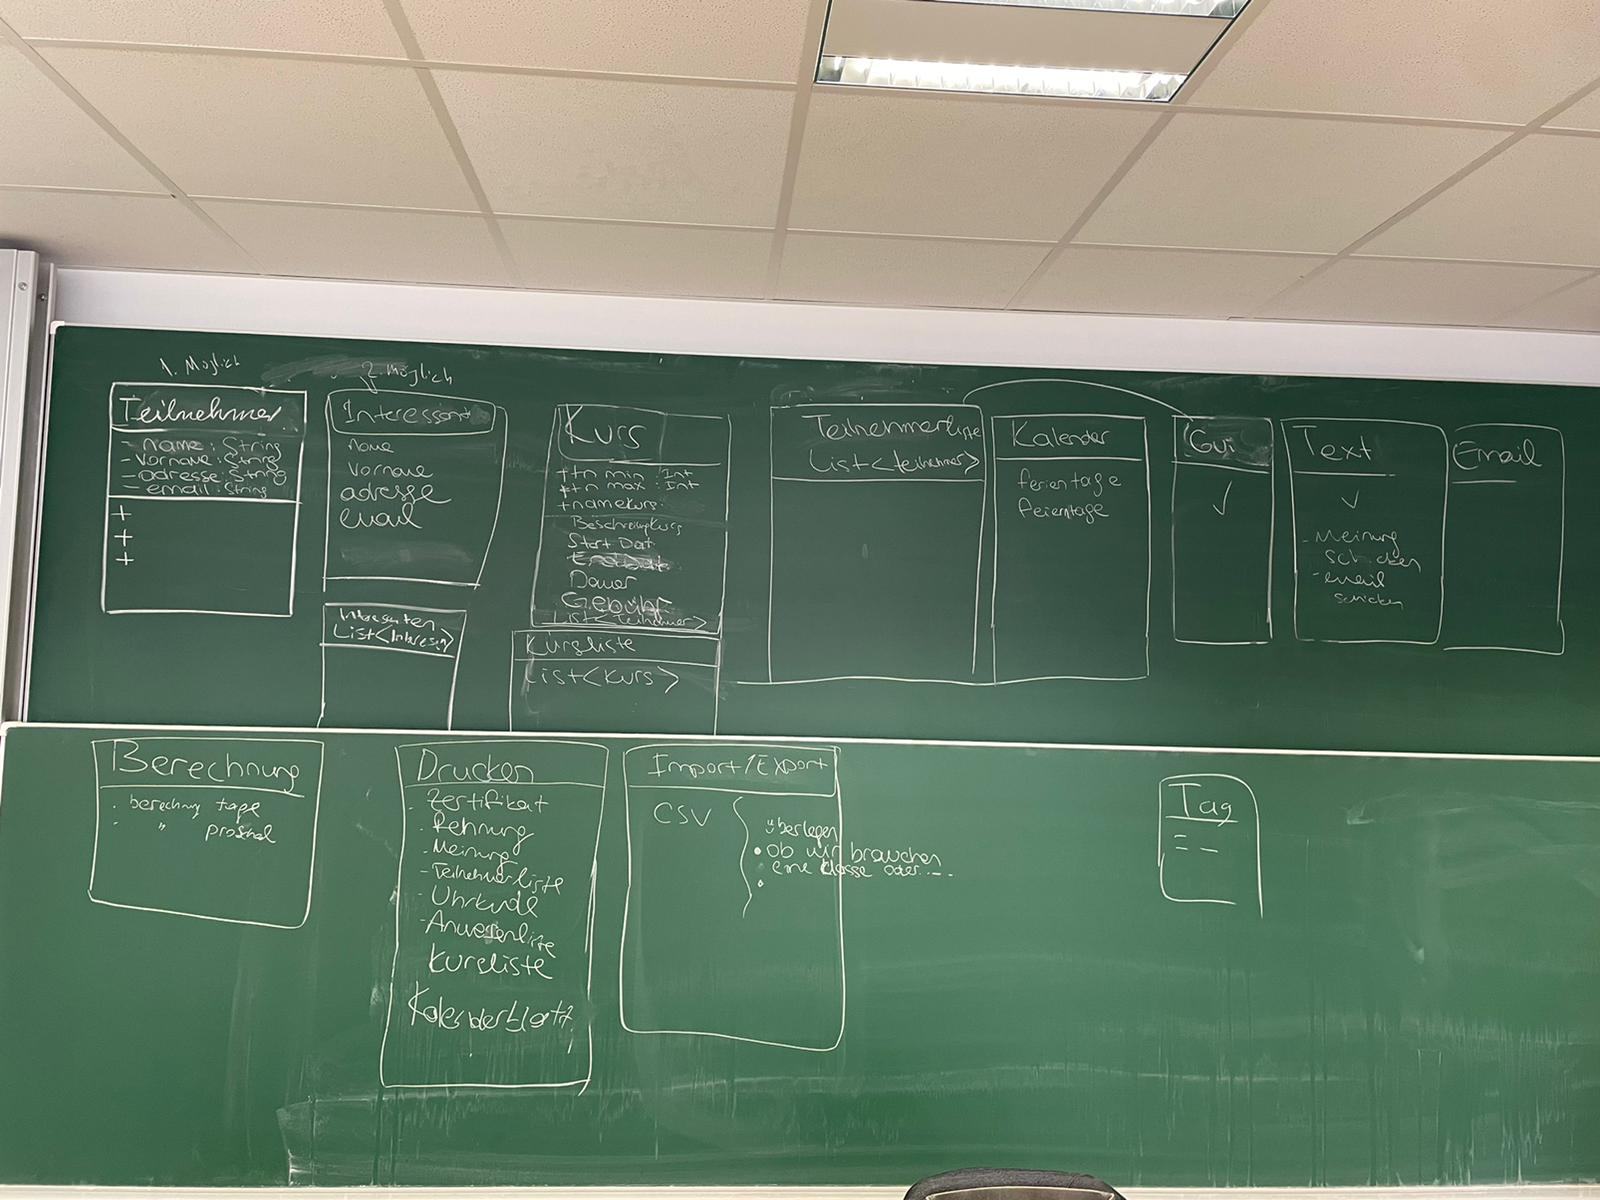 1. Möglich
Teilnehmer
- name : String
- Vorname : String
- adresse : String
- email : String
+
+
+
2. Möglich
Interessant
Name
Vorname
adresse
email
Interesenten
List<Interesen>
Kurs
+tn min : Int
+tn max : Int
+namekurs.
Beschreibkurs
Start Dat
Dauer
Gebühr
List<Teilnehmer>
Kursliste
List<Kurs>
Teilnehmerliste
List<teilnehmer>
Kalender
ferientage
feierntage
Gui
✓
Text
✓
- Meinung
schicken
- email
schicken
Email
Berechnung
. berechnung tage
. " prozinal
Drucken
. Zertifikat
. Rehnung
- Meinung
- Teilnehmerliste
- Uhrkunde
- Anwesenliste
Kursliste
Kalenderblatt
Import/Export
CSV
überlegen
• ob wir brauchen
eine klasse oder ...
•
Tag